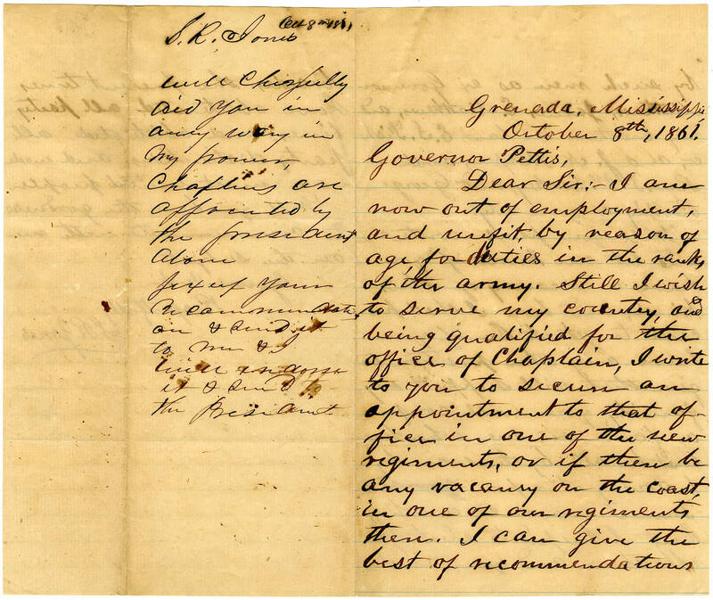 S. R. Jones
Oct 8th 1861
will Chefully
aid you in
any way in
my power,
Chaplins are
appointed by
the president
alone
fix up your
recommendati
on & send it
to me & I
will endorse
it & send to
the President
Grenada, Mississippi
October 8th, 1861.
Governor Pettis,
Dear Sir:- I am
now out of employment,
and unfit, by reason of
age, for duties in the ranks
of the army. Still I wish
to serve my country, and
being qualified for the
office of Chaplain, I write
to you to secure an
appointment to that of-
fice in one of the new
regiments, or if there be
any vacancy on the coast,
in one of our regiments
there. I can give the
best of recommendations